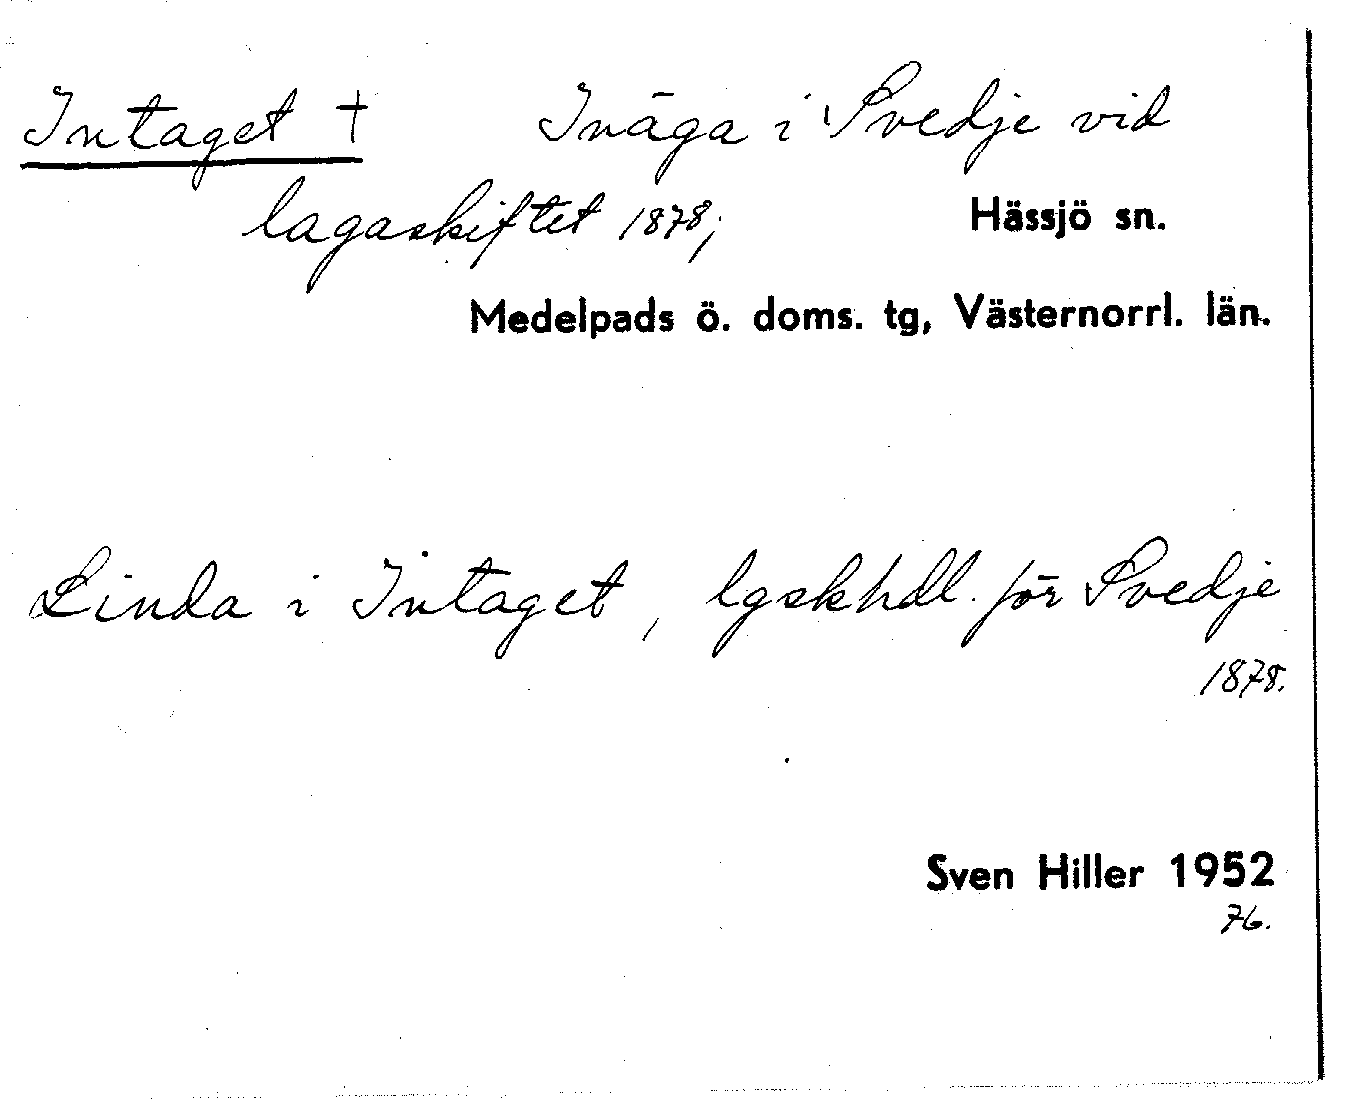 Intaget † Inäga i Svedje vid
lagaskiftet 1878;
Hässjö sn.
Medelpads ö. doms. tg, Västernorrl. län.
Linda i Intaget, lgskhdl. för Svedje
1878.
Sven Hiller 1952
76.